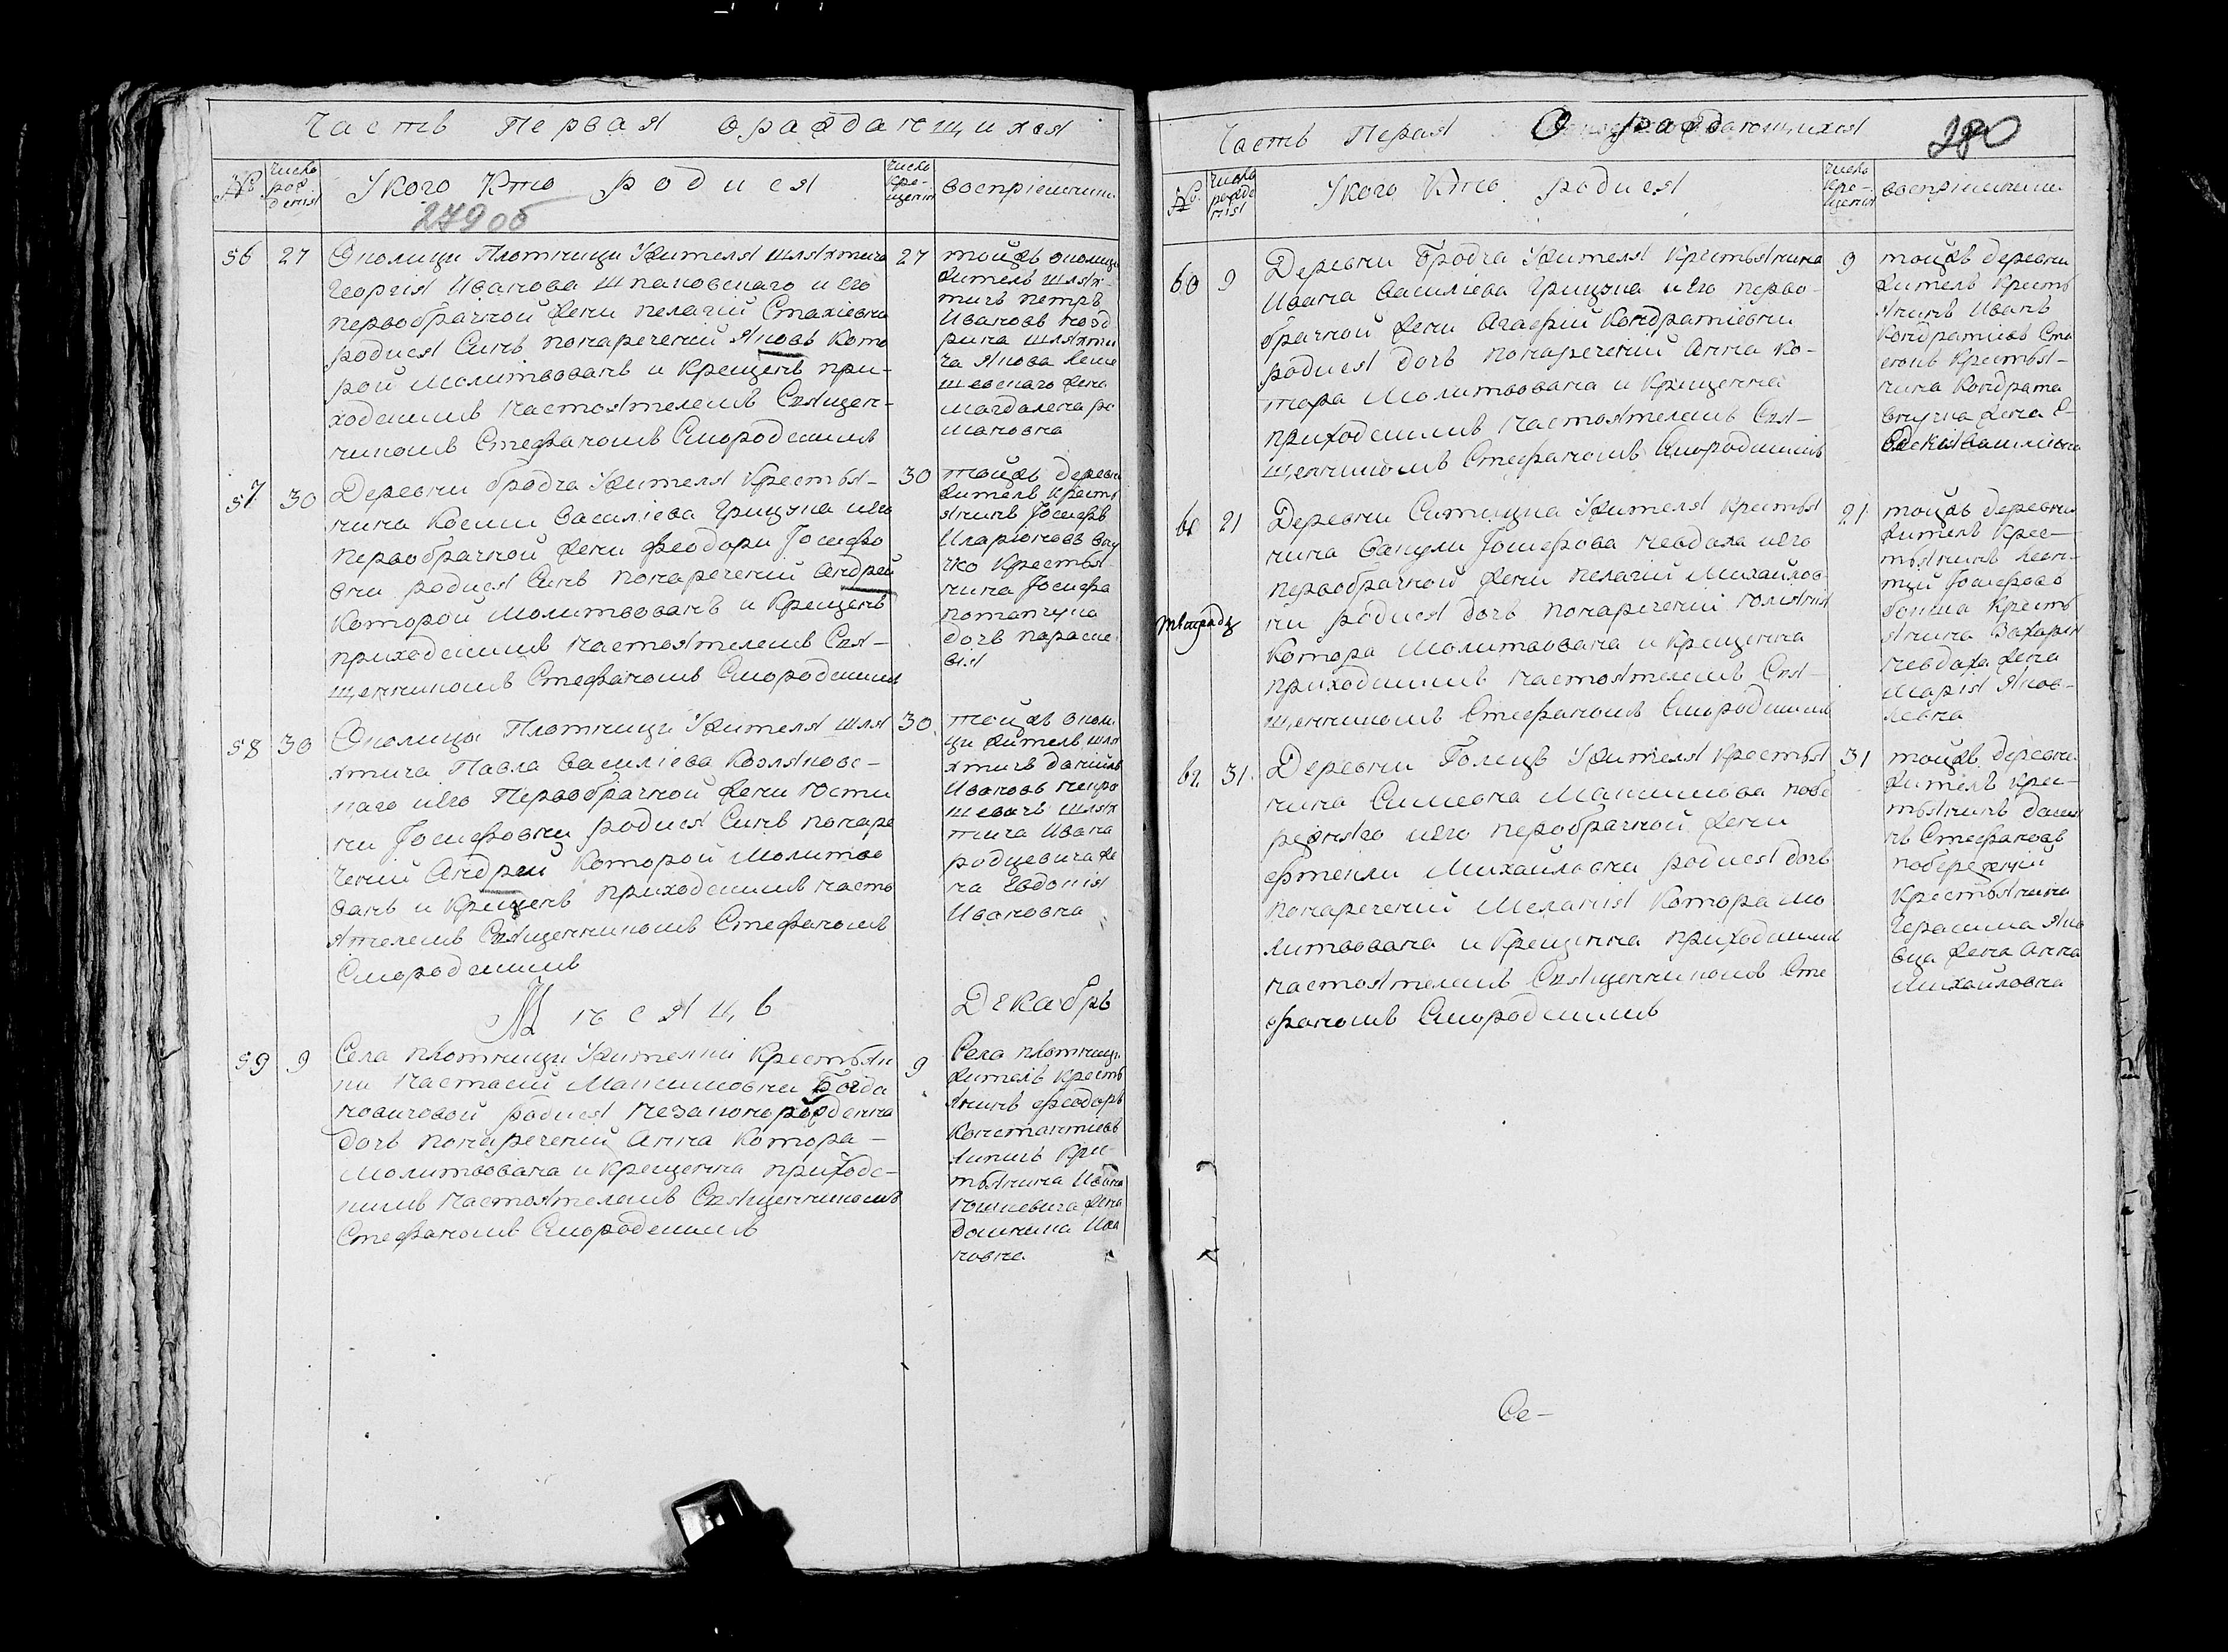 Часть Первая о раждающихся
№
число рождения
У кого Кто родился
число крещения
воспріемники
279 об
56 27
Околици Плотници Жителя шляхтича
Георгія Иванова Шпаковскаго и Его
первобрачной жени пелагіи Стахіевни
родился Синъ нонареченій Яковъ Кото
рой Молитвованъ и Крещенъ при-
ходскимъ настоятелемъ Священ-
никомъ Стефаномъ Смородскимъ
27
тойжъ околици
житель шлях-
тичъ петръ
Ивановъ
шляхти
ча Якова
жена
магдалена ро
мановна
57 30
Деревни бродча Жителя Крестья-
нина Косми Василіева Грицука и Его
первобрачной жени феодори Іосифо
вни родился Синъ нонареченій Андрей
Которой молитвованъ и Крещенъ
приходскимъ настоятелемъ Свя-
щенникомъ Стефаномъ Смородскимъ
30
тойжъ деревни
житель Кресть
янинъ Іосифъ
Иларіоновъ
Крестья
нина Іосифа
потапчука
дочь параске
вія
58 30
Околици Плотници Жителя шля
хтича Павла Василіева Козляковс-
каго и Его Первобрачной жени Юсти
ни Іосифовни родился Синъ нонаре
ченій Андрей Которой Молитво
ванъ и Крещенъ приходскимъ насто
ятелемъ Священникомъ Стефаномъ
Смородскимъ
30
тойжъ околи
ци житель шля
хтичъ даніилъ
Ивановъ
шлях
тича Ивана
родцевича же
на Евдокія
Ивановна
Мѣсяцъ Декабрь
59 9
Села плотници Жителки Крестьян
ки Настасіи Максимовни Богда
новичовой родился незаконорожденна
дочь нонареченій Анна Котора-
Молитвована и Крещенна приходс-
кимъ настоятелемъ Священникомъ
Стефаномъ Смородскимъ
9
Села плотници
житель Кресть
янинъ феодоръ
Константіевъ
Кре-
стьянина Ивана
жена
домникиа Ива
новна
Часть Перая О раждающихся
280
№
число рожде нія
У кого Кто родился
число крещенія
воспріемники
60 9
Деревни Бродча Жителя Крестьянина
Ивана Василіева Грицука и Его перво-
брачной жени Агафіи Кондратіевни
родился дочь нонареченій Анна Ко-
тора Молитвована и Крещенна
приходскимъ настоятелемъ Свя-
щенникомъ Стефаномъ Смородскимъ
9
тойжъ деревни
житель Кресть
янинъ Иванъ
Кондратіевъ
Крестья-
нина Кондрата
жена Е-
вдокія Василіевна
61 21
Деревни Ситицка Жителя Крестья
нина Вакули Іосифова невдаха и Его
первобрачной жени пелагіи Михайлов
ни родился дочь нонареченій Юліянія
Котора Молитвована и Крещенна
приходскимъ настоятелемъ Свя-
щенникомъ Стефаномъ Смородскимъ
21
тойжъ деревни
житель Крес-
тьянинъ Леон-
тій Іосифовъ
Кресть
янина Захарія
невдаха жена
Марія Яков-
левна
62 31
ДеревниГолецъ Жителя Крестья
нина Симеона Максимова побе
режняго и Его первобрачной жени
Михайловни родился дочь
нонареченій Меланія Котора Мо
литвована и Крещенна приходскимъ
настоятелемъ Священникомъ Сте
фаномъ Смородскимъ
31
тойжъ деревни
житель Крес-
тьянинъ
Стефановъ
побережній
Крестьянина
Герасима Яко
вца жена Анна
Михайловна
Се-